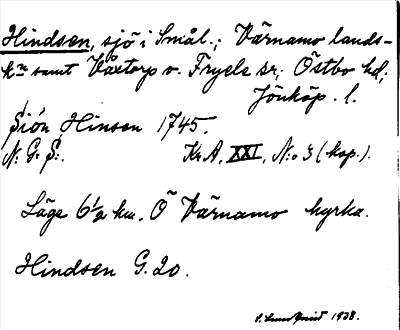 Hindsen, sjö i Smål.; Värnamo lands-
kn samt Våxtorp o. Fryele sr; Östbo hd;
Jönköp. l.
Siön Hinsen 1745.
N: G: S:. Kr.A, XXI, N:o 3 (kop.).
Läge 6 1/2 km. Ö Värnamo kyrka.
Hindsen G. 20.
1938.